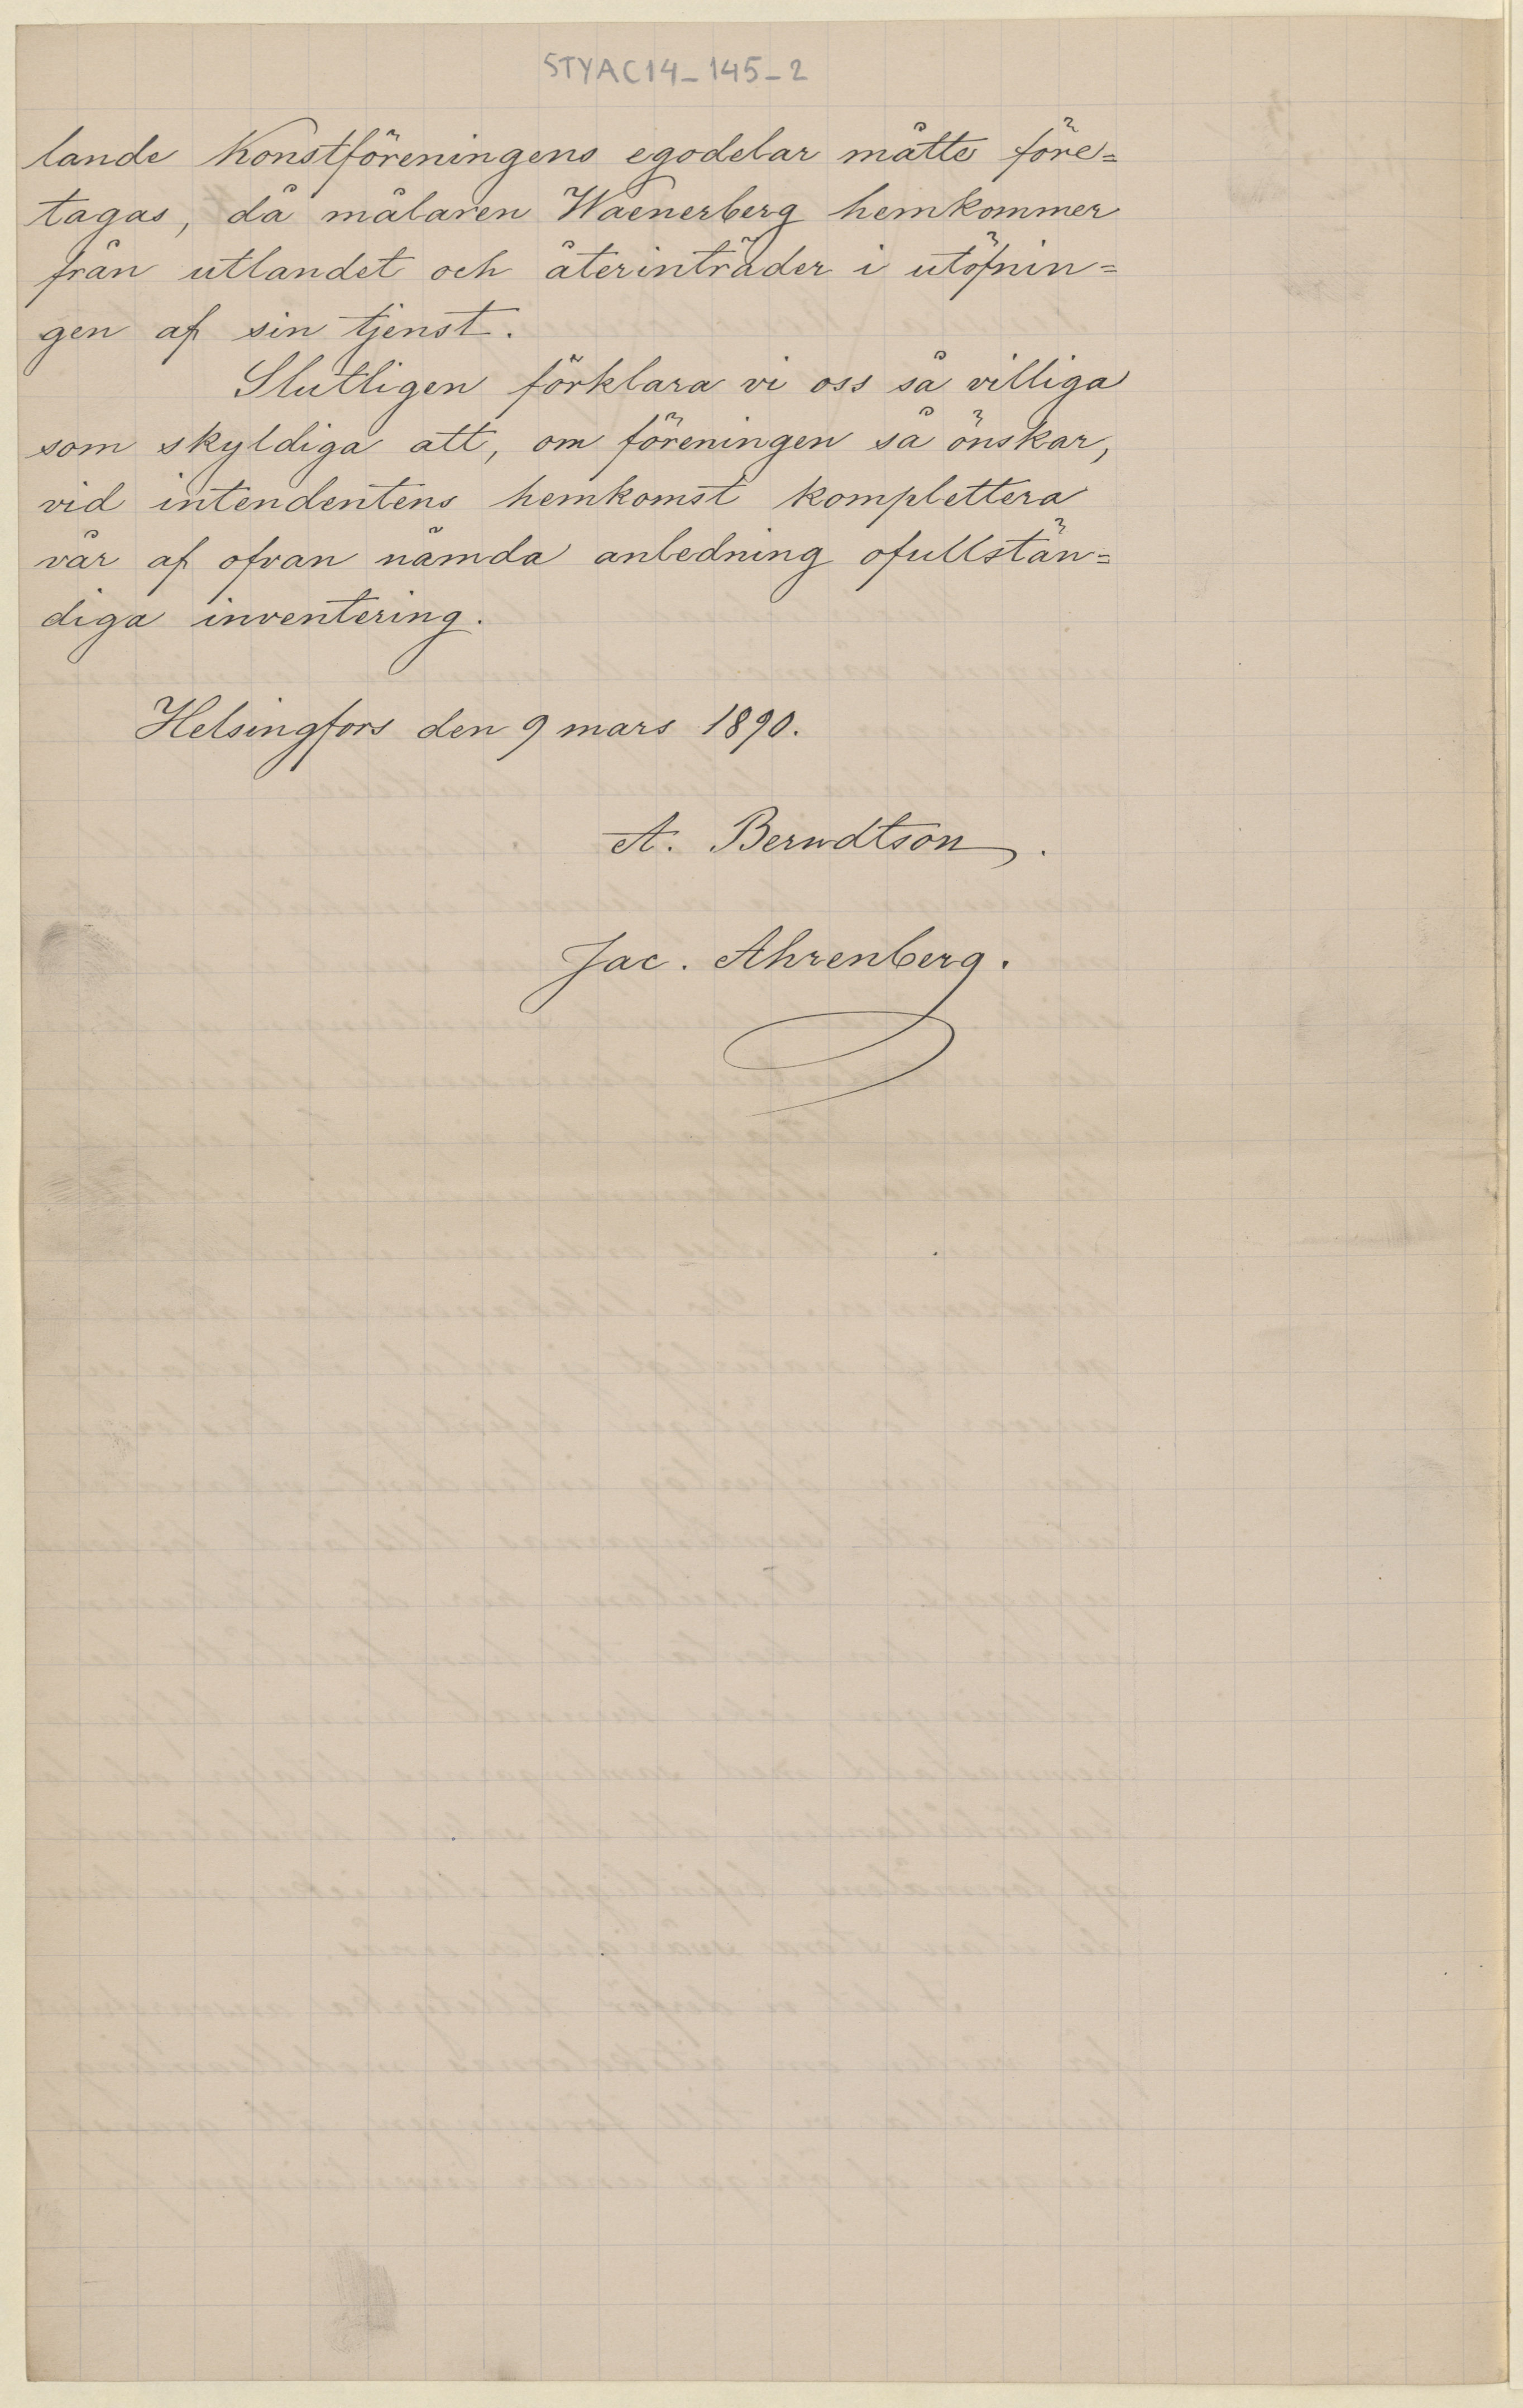 STYAC14-145-2
lande Konstföreningens egodelar måtte före=
tagas, då målaren Waenerberg hemkommer
från utlandet och återinträder i utöfnin=
gen af sin tjenst.
Slutligen förklara vi oss så villiga
som skyldiga att, om föreningen så önskar,
vid intendentens hemkomst komplettera
vår af ofvan nämda anledning ofullstän=
diga inventering.
Helsingfors den 9 mars 1890.
A. Berndtson.
Jac. Ahrenberg.